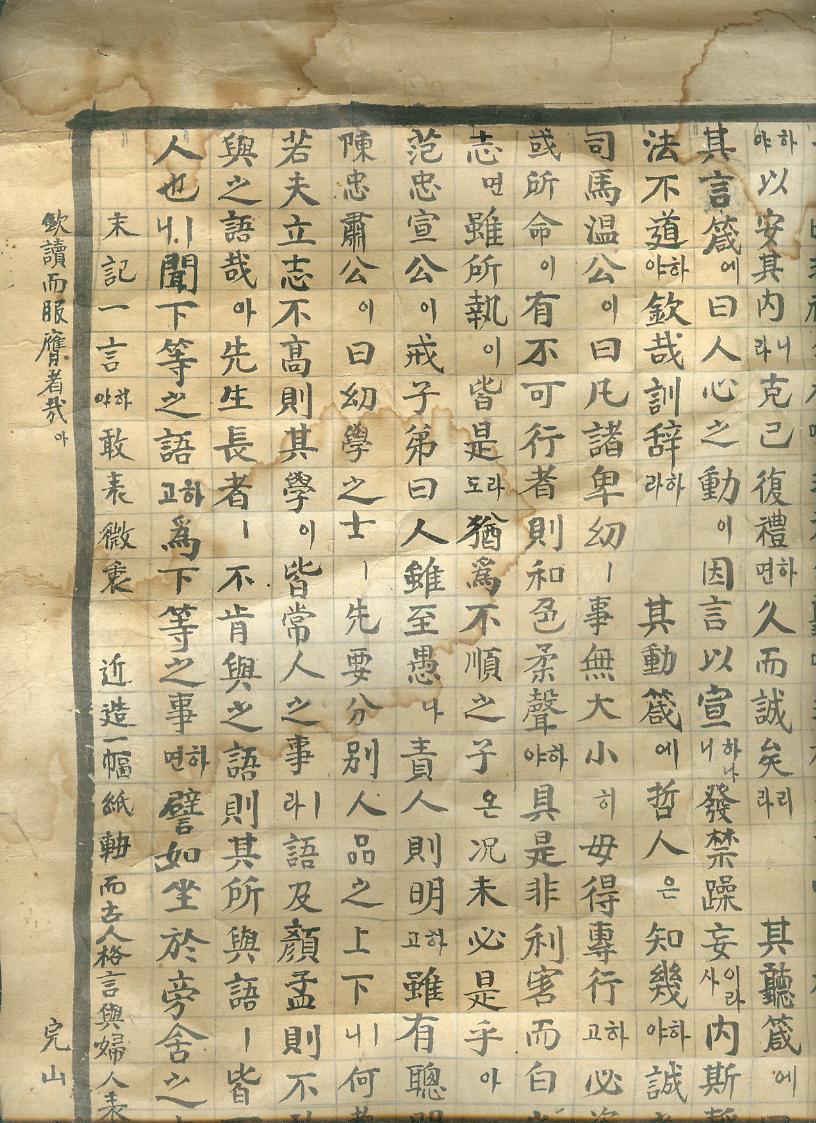 하야以安其內니라克己復禮하면久而誠矣리라 其聽箴에
其言箴에曰人心之動이因言以宣하나니發禁躁妄이라사內斯
法不道하야欽哉訓辭하라 其動箴에哲人은知幾하야誠
司馬溫公이曰凡諸卑幼ㅣ事無大小히毋得專行하고必
或所命이有不可行者則和色柔聲하야具是非利害而白
志면雖所執이皆是라도猶爲不順之子온況未必是乎아
范忠宣公이戒子弟曰人雖至愚나責人則明하고雖有聰
陳忠肅公이曰幼學之士ㅣ先要分別人品之上下ㅣ니何
若夫立志不高則其學이皆常人之事ㅣ라語及顏孟則不
與之語哉아先生長者ㅣ不肯與之語則其所與語ㅣ皆
人也ㅣ니聞下等之語하고爲下等之事하면譬如坐於旁舍之
末記一言하야敢表微衷 近造一幅紙軸而古人格言與婦人表
欽讀而服膺者哉아 完山